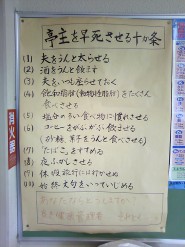 亭主を早死させる十ヶ条
(1) 夫をうんと太らせる
(2) 酒をうんと飲ます
(3) 夫をいつも座らせておく
(4) 飽和脂肪(動物性脂肪)をたくさん
食べさせる
(5) 塩分の多い食べ物に慣れさせる
(6) コーヒーをがぶがぶ飲ませる
(砂糖、菓子をうんと食べさせる)
(7) "たばこ"をすすめる
(8) 夜ふかしさせる
(9) 休暇旅行に行かせぬ
(10) 終始文句をいっていじめる
あなたならどうしますか
消火器